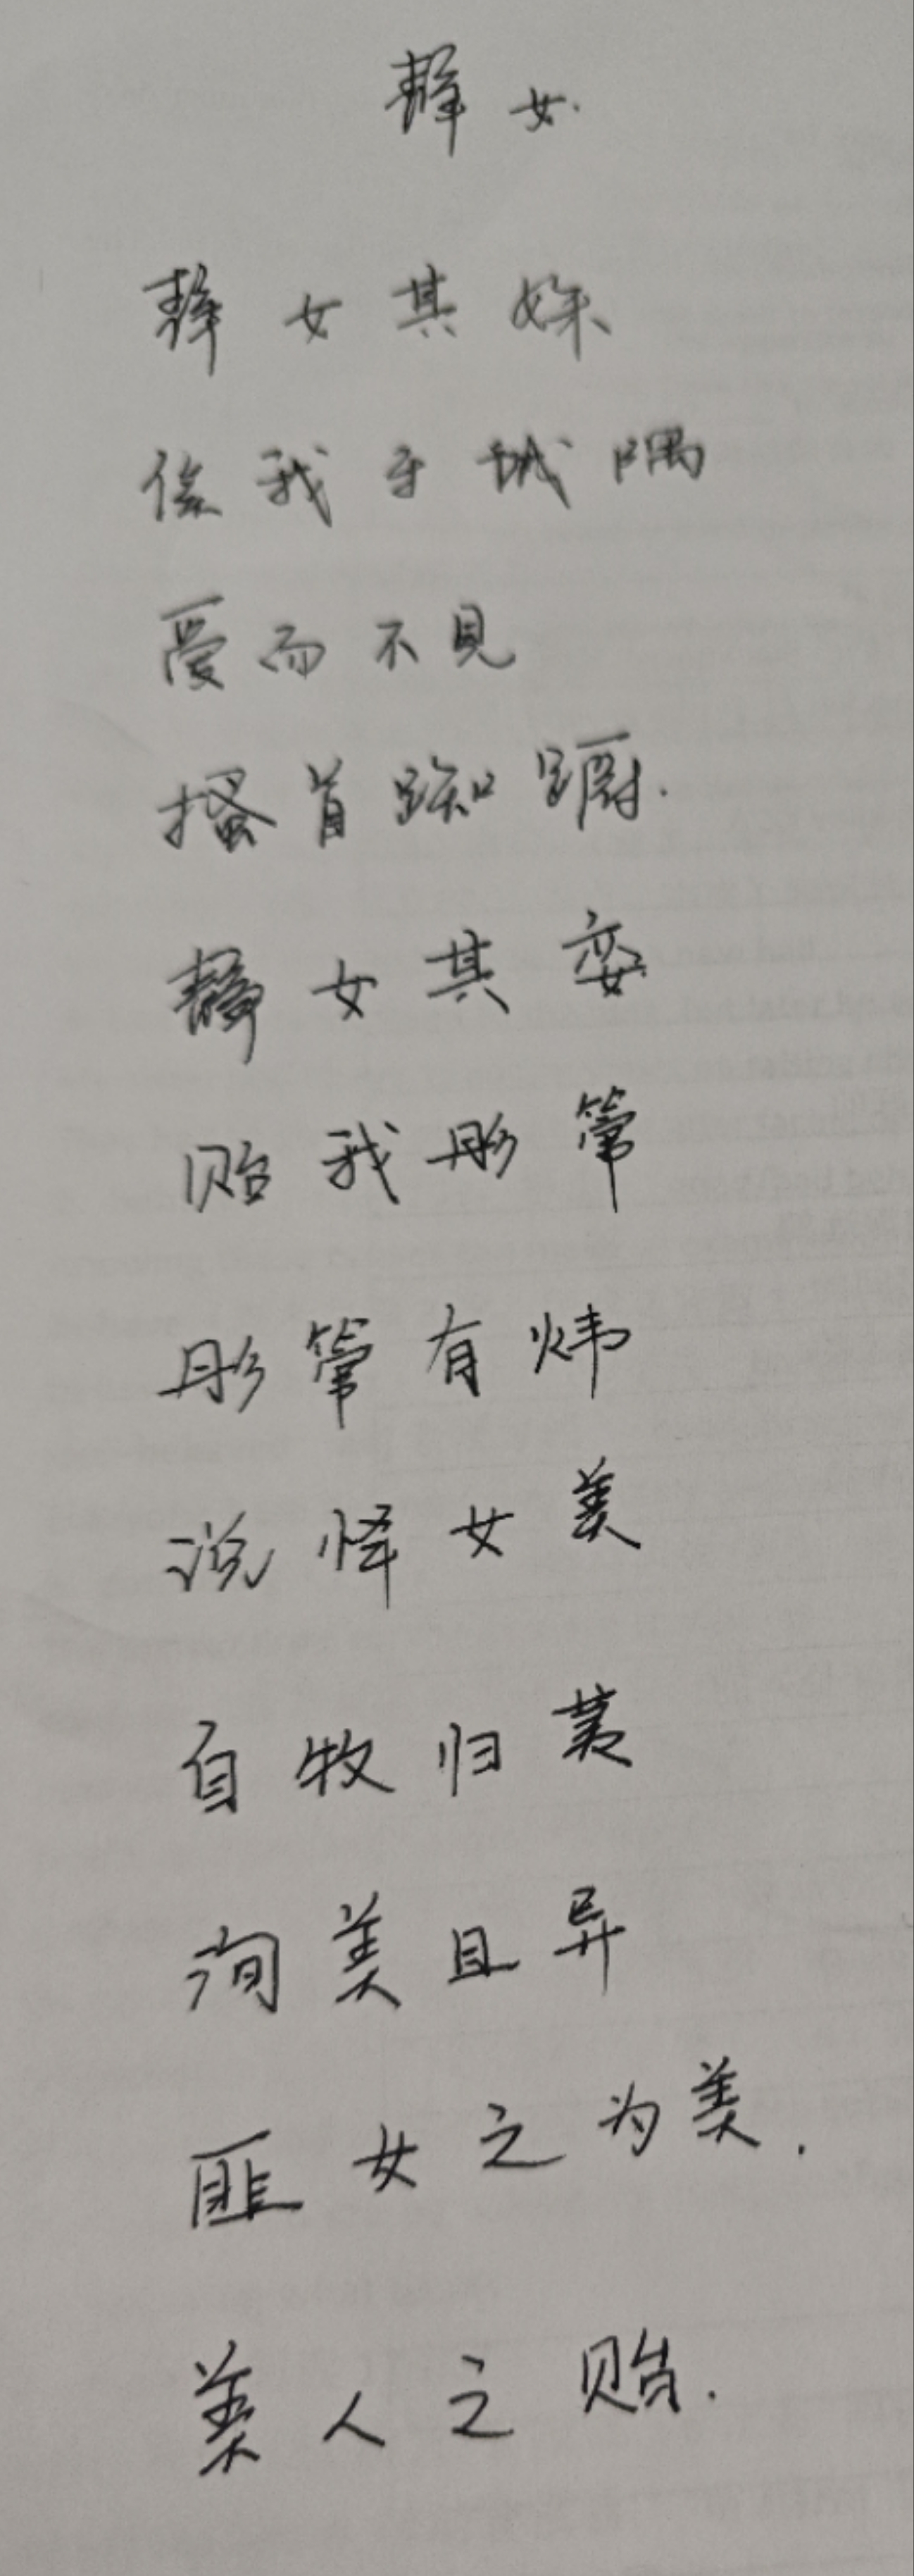 静女
静女其姝
俟我于城隅
爱而不见
搔首踟蹰.
静女其娈
贻我彤管
彤管有炜
说怿女美
自牧归荑
洵美且异
匪女之为美.
美人之贻.